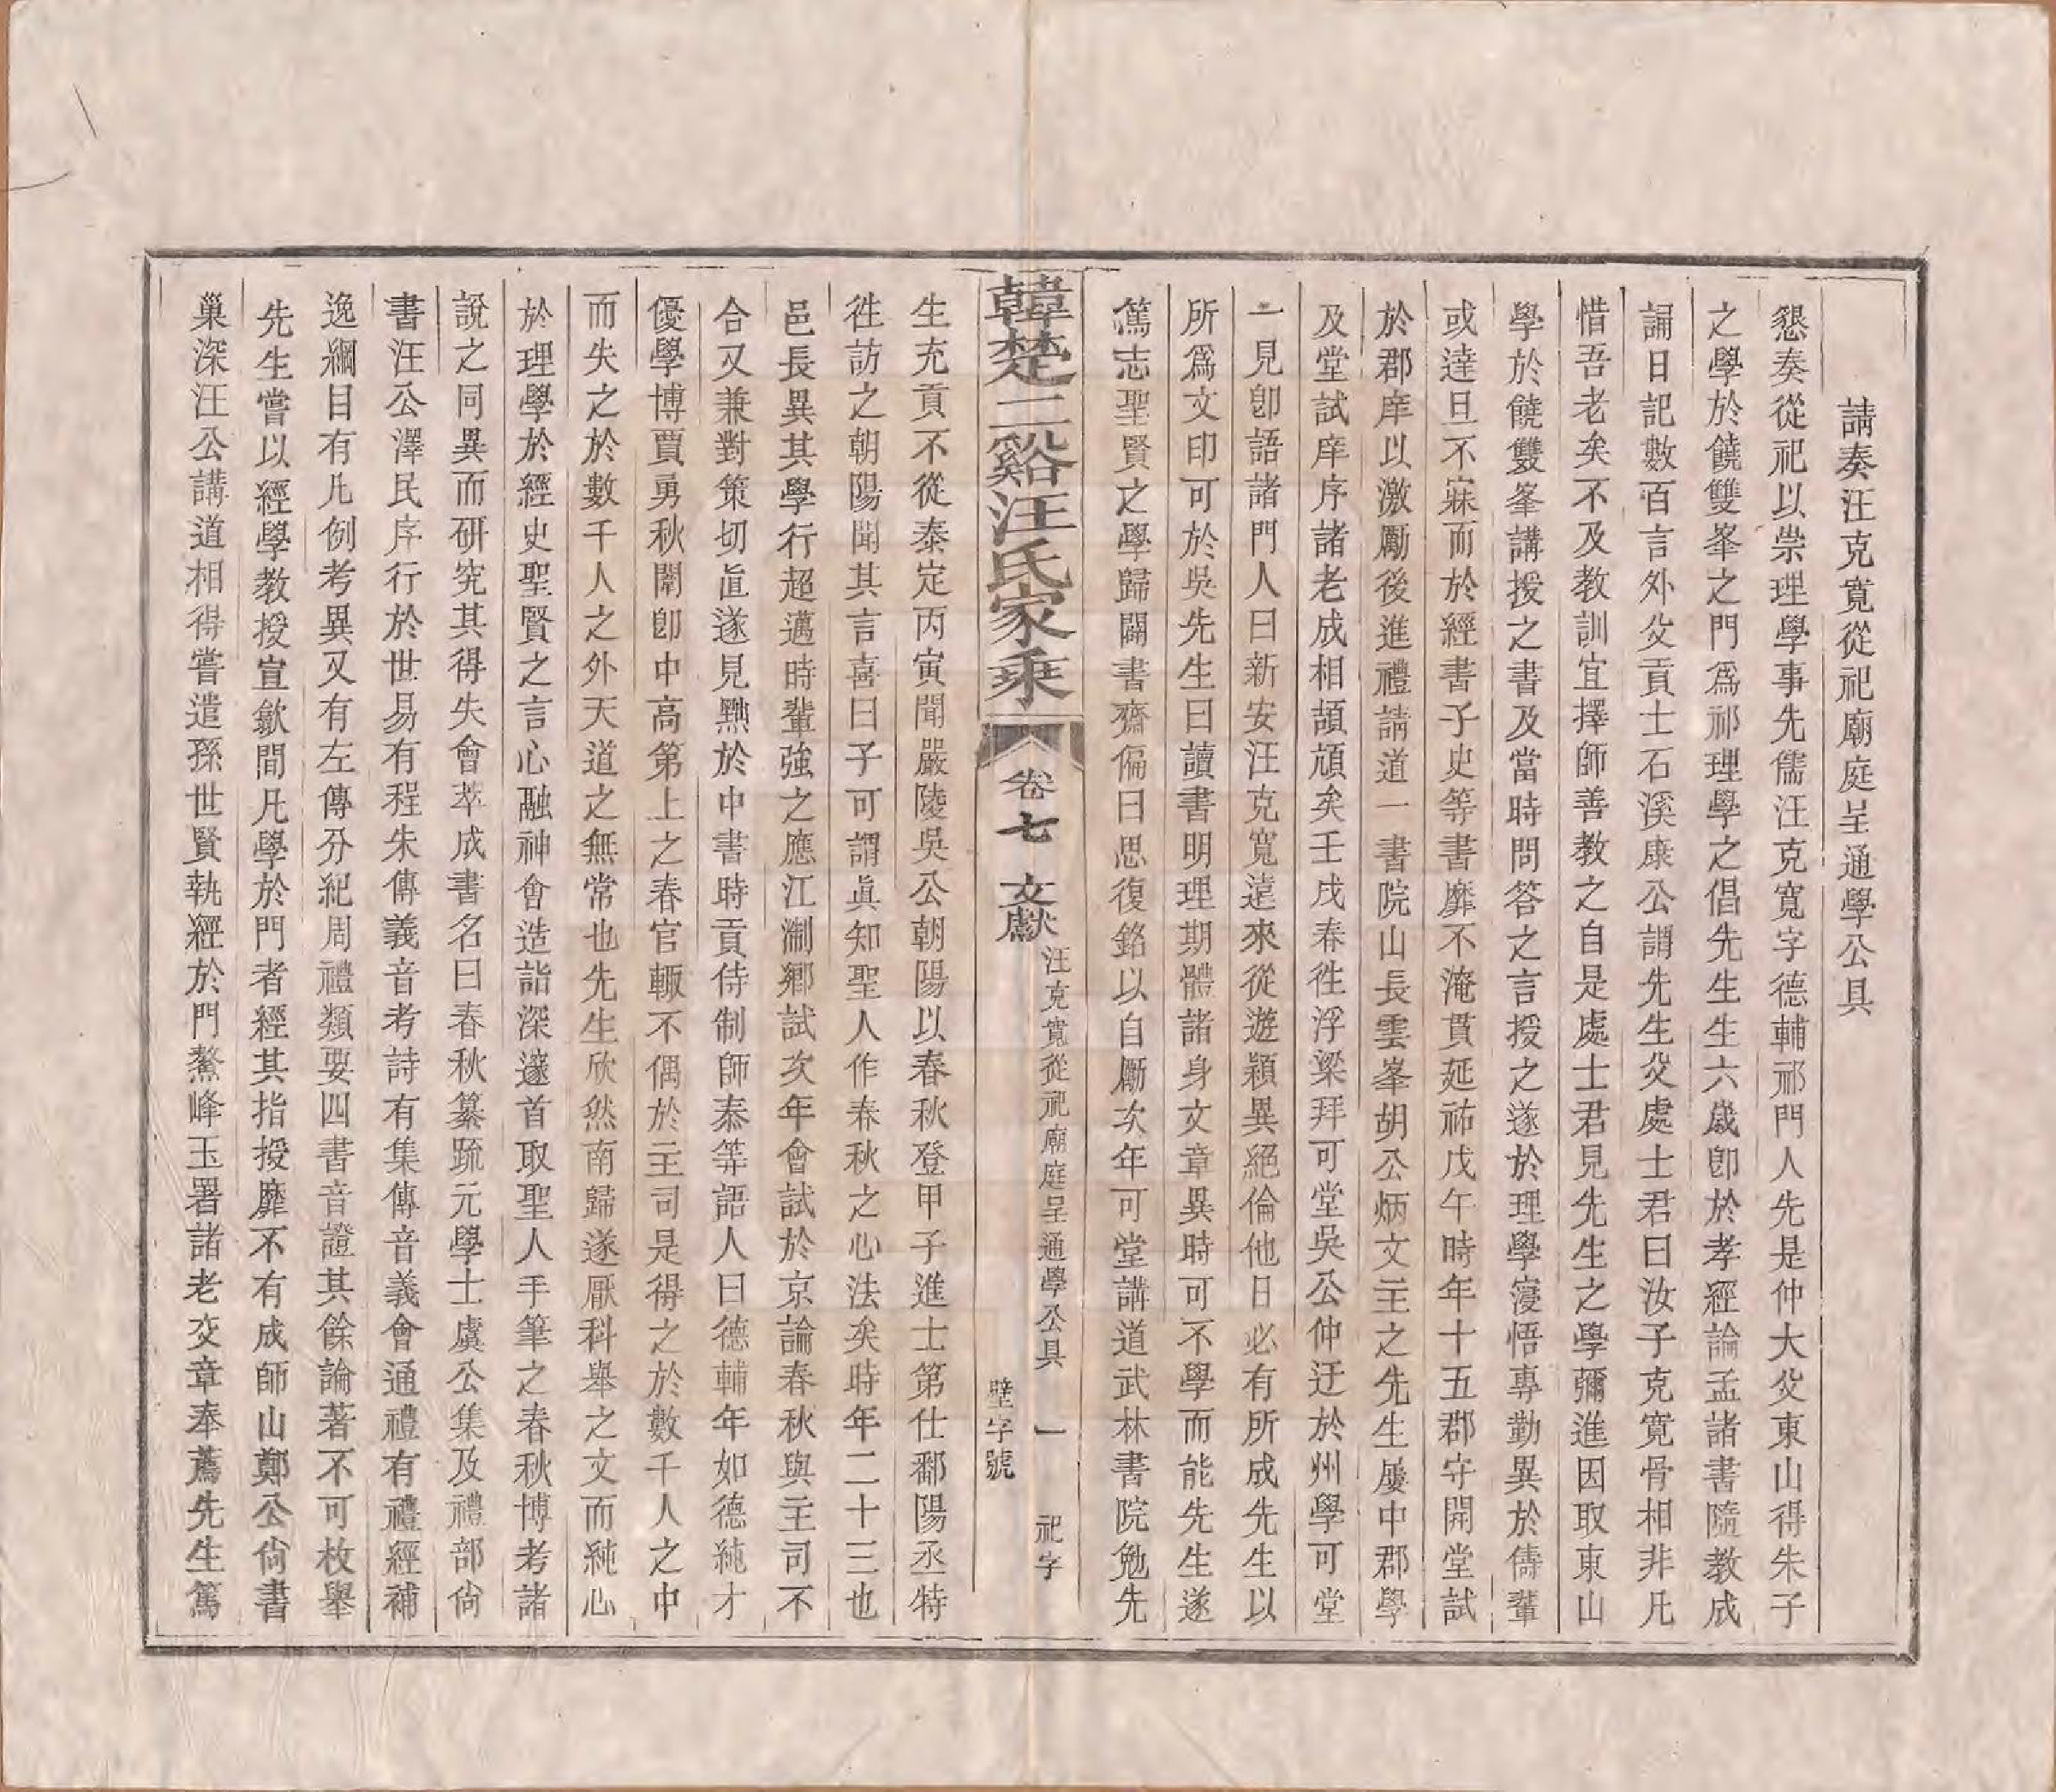 請奏汪克寬從祀廟庭呈通學公具
懇奏從祀以崇理學事先儒汪克寬字德輔祁門人先是仲大父東山得朱子
之學於饒雙峯之門爲祁理學之倡先生生六歲卽於孝經論孟諸書隨教成
誦日記數百言外父貢士石溪康公謂先生父處士君曰汝子克寬骨相非凡
惜吾老矣不及教訓宜擇師善教之自是處士君見先生之學彌進因取東山
學於饒雙峯講授之書及當時問答之言授之遂於理學寖悟專勤異於儔輩
或達旦不寐而於經書子史等書靡不淹貫延祐戊午時年十五郡守開堂試
於郡庠以激勵後進禮請道一書院山長雲峯胡公炳文主之先生屢中郡學
及堂試庠序諸老成相頡頏矣壬戌春徃浮梁拜可堂吳公仲迂於州學可堂
一見卽語諸門人曰新安汪克寬遠來從遊穎異絕倫他日必有所成先生以
所爲文印可於吳先生曰讀書明理期體諸身文章異時可不學而能先生遂
篤志聖賢之學歸闢書齋偏曰思復銘以自勵次年可堂講道武林書院勉先
韓楚二谿汪氏家乘
卷七 文獻 汪克寬從祀廟庭呈通學公具 一 祀字
壁字號
生充貢不從泰定丙寅聞嚴陵吳公朝陽以春秋登甲子進士第仕鄱陽丞特
徃訪之朝陽聞其言喜曰子可謂眞知聖人作春秋之心法矣時年二十三也
邑長異其學行超邁時輩強之應江淛鄉試次年會試於京論春秋與主司不
合又兼對策切直遂見黜於中書時貢侍制師泰等語人曰德輔年如德純才
優學博賈勇秋闈卽中高第上之春官輒不偶於主司是得之於數千人之中
而失之於數千人之外天道之無常也先生欣然南歸遂厭科舉之文而純心
於理學於經史聖賢之言心融神會造詣深邃首取聖人手筆之春秋博考諸
說之同異而研究其得失會萃成書名曰春秋纂疏元學士虞公集及禮部尙
書汪公澤民序行於世易有程朱傳義音考詩有集傳音義會通禮有禮經補
逸綱目有凡例考異又有左傳分紀周禮類要四書音證其餘論著不可枚舉
先生嘗以經學教授宣歙間凡學於門者經其指授靡不有成師山鄭公尙書
巢深汪公講道相得嘗遣孫世賢執經於門鰲峰玉署諸老交章奉薦先生篤